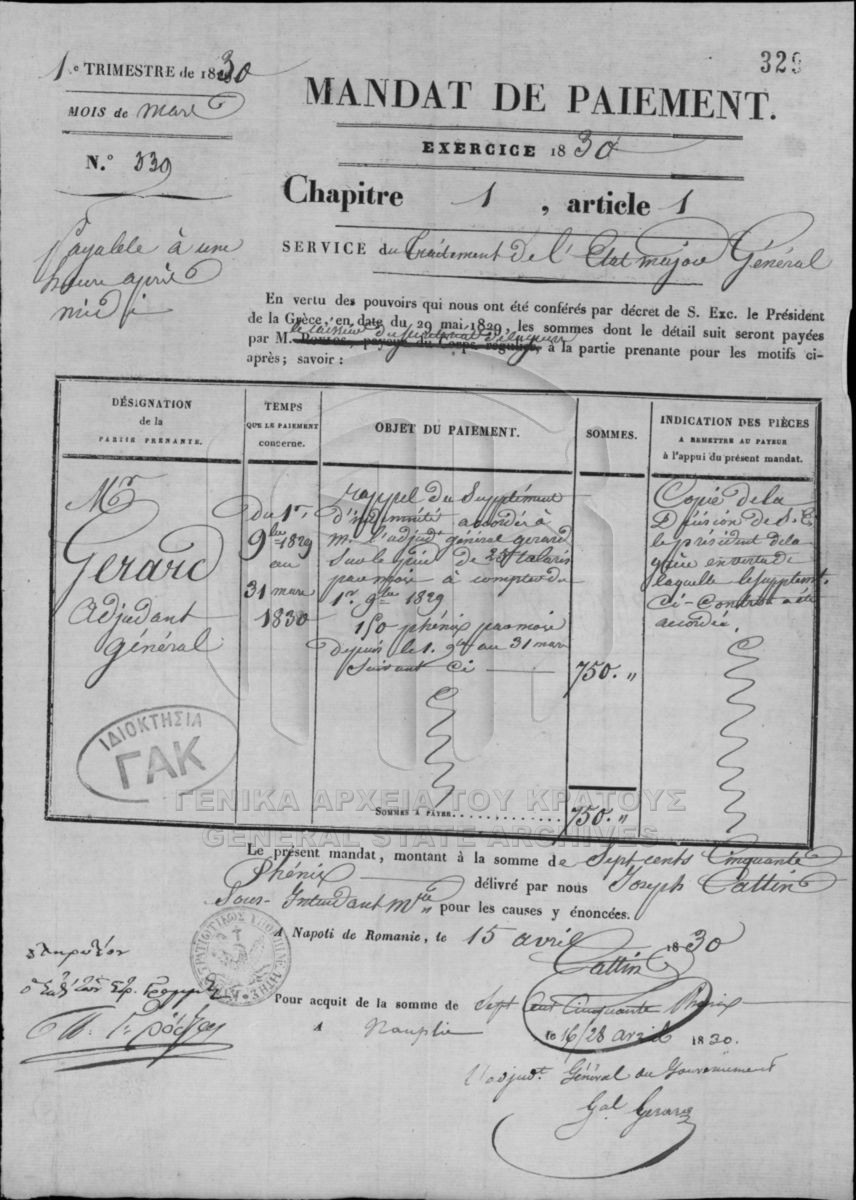 329
1.e TRIMESTRE de 1830
MOIS de Mars
N.° 339
Payable à une
heure après
midi
MANDAT DE PAIEMENT.
EXERCICE 1830
Chapitre 1, article 1
SERVICE du Traitement de l'Etat major Général
En vertu des pouvoirs qui nous ont été conférés par décret de S. Exc. le Président
de la Grèce, en date du 29 mai 1829, les sommes dont le détail suit seront payées
par M. à la partie prenante pour les motifs ci-
après; savoir :
DÉSIGNATION
de la
PARTIE PRENANTE.
TEMPS
QUE LE PAIEMENT
concerne.
OBJET DU PAIEMENT.
SOMMES.
INDICATION DES PIÈCES
A REMETTRE AU PAYEUR
à l'appui du présent mandat.
Mr
Gerard
Adjudant
général
Du 1r.
9bre 1829
au
31 mars
1830
Rappel du Supplément
d'indemnité accordé à
Mr. l'adjudt général gerard
sur le pied de talaris
par mois à compter du
1r. 9bre 1829
150 phénix par mois
depuis le 1. 9bre au 31 mars
suivant Ci
750. "
Copie de la
de S. E.
le président de la
grèce en vertu de
laquelle le supplément
Ci-Contre a été
accordé.
SOMMES A PAYER
750. "
ΙΔΙΟΚΤΗΣΙΑ
ΓΑΚ
ΓΕΝΙΚΑ ΑΡΧΕΙΑ ΤΟΥ ΚΡΑΤΟΥΣ
GENERAL STATE ARCHIVES
Le présent mandat, montant à la somme de Sept cents Cinquante
Phénix délivré par nous Joseph Cattin
Sous-Intendant Mre pour les causes y énoncées.
A Napoli de Romanie, le 15 avril 1830
Cattin
Pour acquit de la somme de Sept Cent Cinquante Phénix
A Nauplie le 16/28 avril 1830.
L'adjudt. Général du Gouvernement
Gal Gerard